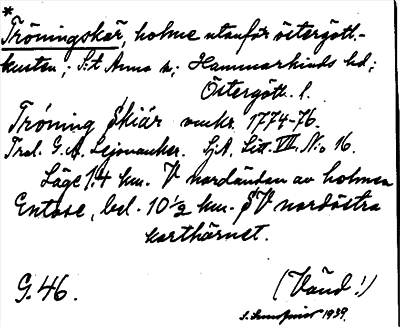 *
Tröningskär, holme utanför östergött.-
kusten; S:t Anna sn; Hammarkinds hd;
Östergötl. l.
Tróning Skiár omkr. 1774-76.
Tral. G. A. Lejonancker. SjA, Lit. VIII. No 16.
Läge 1.4 km. V nordändan av holmen
Entose, bel. 10 1/2 km. SV nordöstra
karthörnet.
G. 46. (Vänd!)
S. 1939.